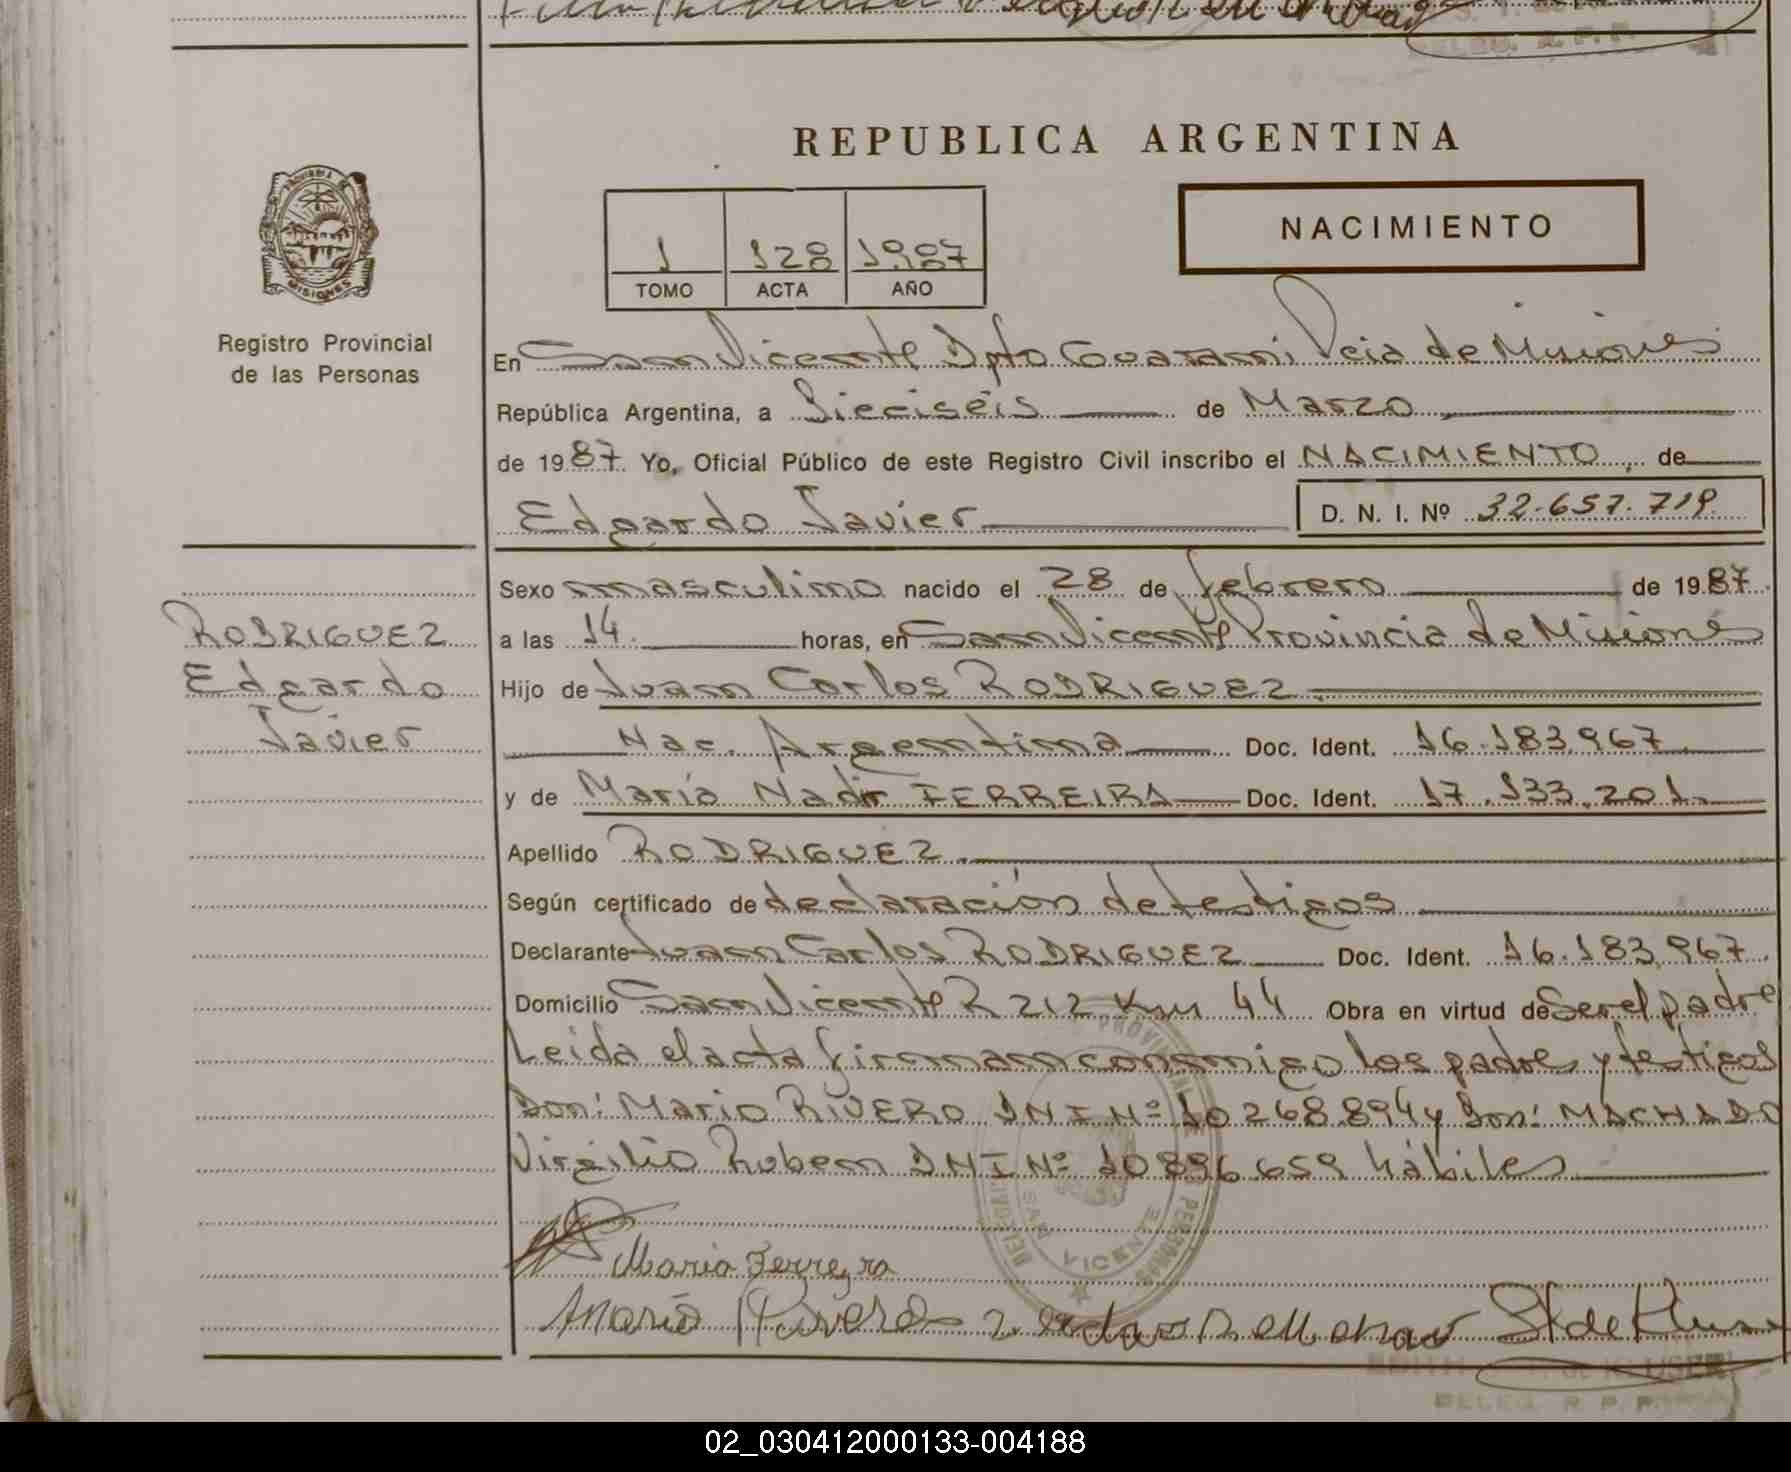 REPUBLICA ARGENTINA
NACIMIENTO
1 128 1987
TOMO ACTA AÑO
MISIONES
Registro Provincial
de las Personas
En San Vicente Dpto Guarani Pcia de Misiones
República Argentina, a Dieciséis de Marzo
de 1987. Yo, Oficial Público de este Registro Civil inscribo el NACIMIENTO, de
Edgardo Javier D. N. I. Nº 32.657.719
RODRIGUEZ
Edgardo
Javier
Sexo masculino nacido el 28 de febrero de 1987.
a las 14. horas, en San Vicente Provincia de Misiones
Hijo de Juan Carlos RODRIGUEZ
Nac. Argentina Doc. Ident. 16.183.967
y de María Nadir FERREIRA Doc. Ident. 17.133.201.
Apellido RODRIGUEZ.
Según certificado de declaración de testigos
Declarante Juan Carlos RODRIGUEZ Doc. Ident. 16.183.967.
Domicilio San Vicente R 212 Km 44 Obra en virtud de Ser el padre
Leida el acta firman conmigo los padres y testigos
Don: Mario RIVERO DNI Nº 10.268.894 y Don: MACHADO
Virgilio Ruben DNI Nº 10.896.659 hábiles
SAN VICENTE
María Ferreyra
Mario Rivero
DELEG. R. P. P.
02_030412000133-004188